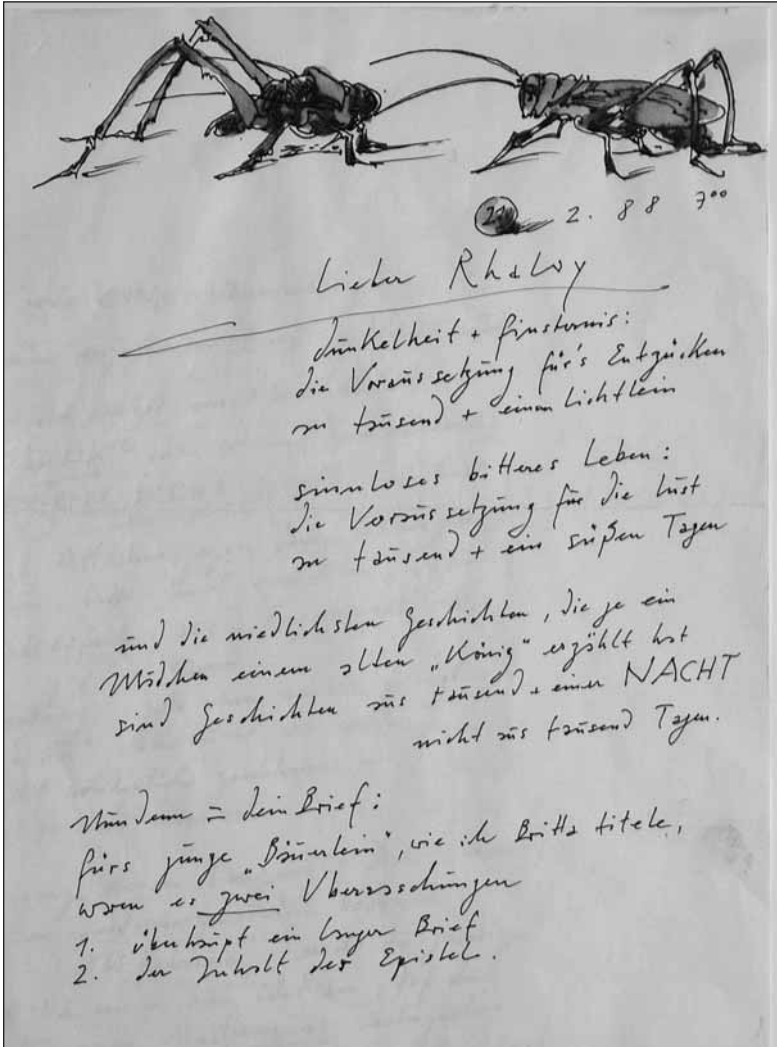 21 2. 88 7⁰⁰
Lieber Rhaloy
dunkelheit + finsternis:
die Voraussetzung für's Entzücken
zu tausend + einem Lichtlein
sinnloses bitteres Leben:
die Voraussetzung für die Lust
zu tausend + ein süßen Tagen
und die niedlichsten Geschichten, die je ein
Mädchen einem alten „König“ erzählt hat
sind Geschichten aus tausend + einer NACHT
nicht aus tausend Tagen.
Nun denn = dein Brief:
fürs junge „Bäuerlein“, wie ich Britta titele,
waren es zwei Überraschungen
1. überhaupt ein langer Brief
2. der Inhalt der Epistel.